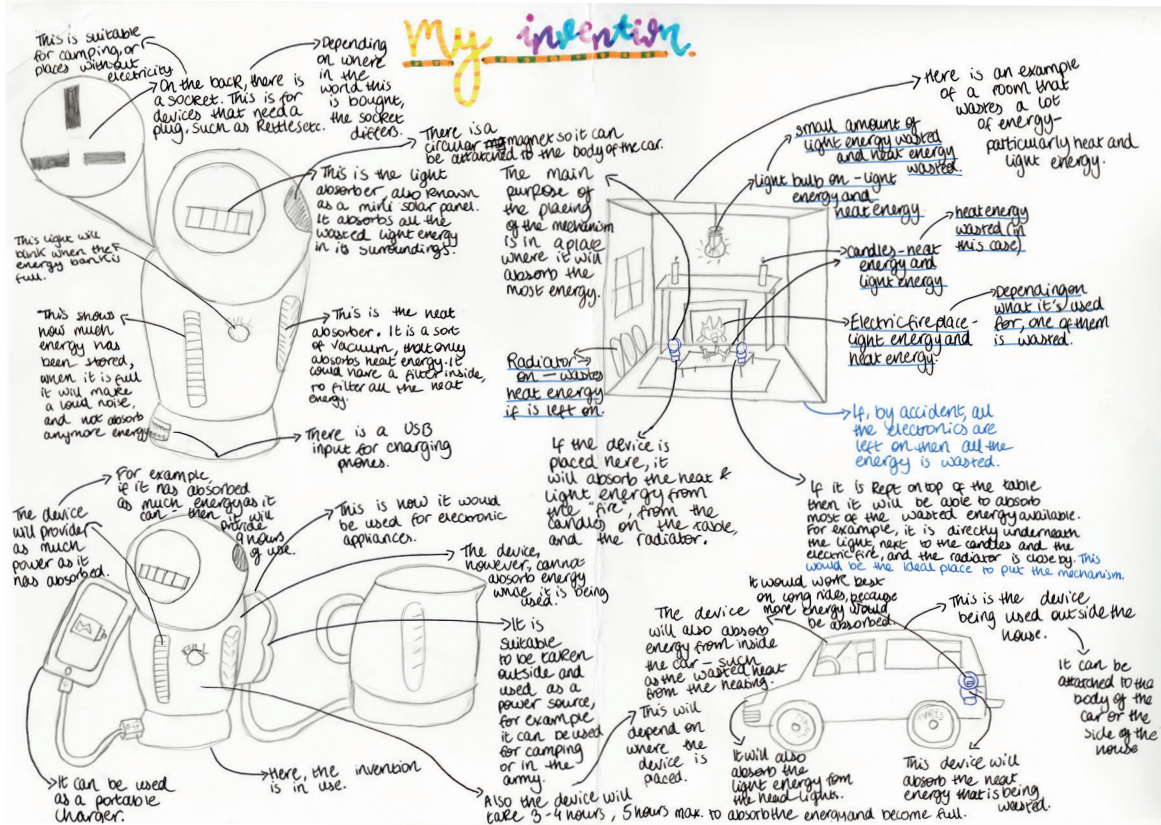 My invention.
This is suitable
for camping, or
places without
electricity
On the back, there is
a socket. This is for
devices that need a
plug, such as kettles etc.
Depending
on where
in the
world this
is bought,
the socket
differs.
There is a
circular magnet so it can
be attatched to the body of the car.
This is the light
absorber, also known
as a mini solar panel.
It absorbs all the
wasted light energy
in its surroundings.
This light will
blink when the
energy bank is
full.
This shows
how much
energy has
been stored,
when it is full
it will make
a loud noise,
and not absorb
anymore energy
This is the heat
absorber. It is a sort
of vacuum, that only
absorbs heat energy. It
could have a filter inside,
to filter all the heat
energy.
There is a USB
input for charging
phones.
The main
purpose of
the placing
of the mechanism
is in a place
where it will
absorb the
most energy.
small amount of
light energy wasted
and heat energy
wasted.
light bulb on - light
energy and
heat energy
Here is an example
of a room that
wastes a lot
of energy-
particularly heat and
light energy.
heat energy
wasted (in
this case)
candles - heat
energy and
light energy
Electric fire place -
light energy and
heat energy.
Depending on
what it's used
for, one of them
is wasted.
Radiator
on - wastes
heat energy
if is left on.
If, by accident, all
the electronics are
left on then all the
energy is wasted.
If the device is
placed here, it
will absorb the heat &
light energy from
the "fire", from the
candles on the table,
and the radiator.
If it is kept on top of the table
then it will be able to absorb
most of the wasted energy available.
For example, it is directly underneath
the light, next to the candles and the
electric fire, and the radiator is close by. This
would be the ideal place to put the mechanism.
For example,
if it has absorbed
as much energy as it
can then it will
provide
9 hours
of use.
The device
will provide
as much
power as it
has absorbed.
This is how it would
be used for electronic
appliances.
The device,
however, cannot
absorb energy
while it is being
used.
It is
suitable
to be taken
outside and
used as a
power source,
for example
it can be used
for camping
or in the
army.
It can be used
as a portable
charger.
Here, the invention
is in use.
Also the device will
take 3-4 hours, 5 hours max. to absorb the energy and become full.
This will
depend on
where the
device is
placed.
It would work best
on long rides, because
more energy would
be absorbed.
The device
will also absorb
energy from inside
the car - such
as the wasted heat
from the heating.
This is the device
being used outside the
house.
It can be
attatched to the
body of the
car or the
side of the
house
It will also
absorb the
light energy from
the head lights.
This device will
absorb the heat
energy that is being
wasted.